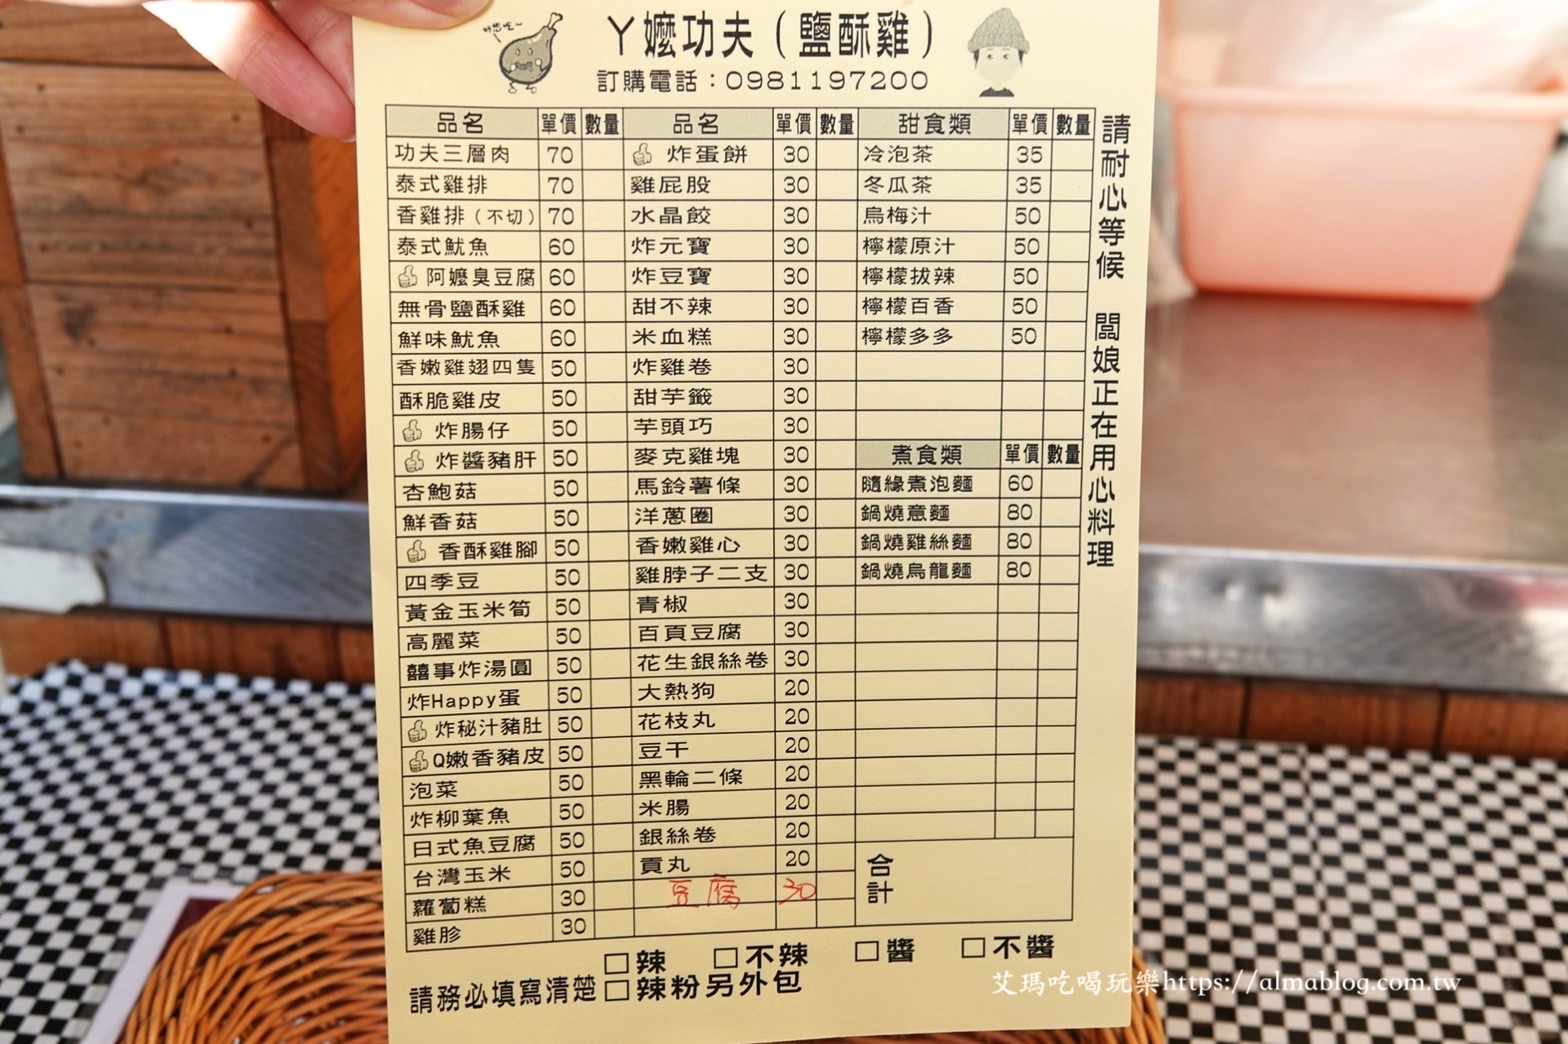 吃吃~
ㄚ嬤功夫(鹽酥雞)
訂購電話:0981197200
品名 單價 數量 品名 單價 數量 甜食類 單價 數量
功夫三層肉 70 炸蛋餅 30 冷泡茶 35
泰式雞排 70 雞屁股 30 冬瓜茶 35
香雞排(不切) 70 水晶餃 30 烏梅汁 50
泰式魷魚 60 炸元寶 30 檸檬原汁 50
阿嬤臭豆腐 60 炸豆寶 30 檸檬拔辣 50
無骨鹽酥雞 60 甜不辣 30 檸檬百香 50
鮮味魷魚 60 米血糕 30 檸檬多多 50
香嫩雞翅四隻 50 炸雞卷 30
酥脆雞皮 50 甜芋籤 30
炸腸仔 50 芋頭巧 30
炸醬豬肝 50 麥克雞塊 30 煮食類 單價 數量
杏鮑菇 50 馬鈴薯條 30 隨緣煮泡麵 60
鮮香菇 50 洋蔥圈 30 鍋燒意麵 80
香酥雞腳 50 香嫩雞心 30 鍋燒雞絲麵 80
四季豆 50 雞脖子二支 30 鍋燒烏龍麵 80
黃金玉米筍 50 青椒 30
高麗菜 50 百頁豆腐 30
囍事炸湯圓 50 花生銀絲卷 30
炸Happy蛋 50 大熱狗 20
炸秘汁豬肚 50 花枝丸 20
Q嫩香豬皮 50 豆干 20
泡菜 50 黑輪二條 20
炸柳葉魚 50 米腸 20
日式魚豆腐 50 銀絲卷 20
台灣玉米 50 貢丸 20 合計
蘿蔔糕 30 豆腐 30
雞胗 30
請耐心等候 闆娘正在用心料理
□辣 □不辣 □醬 □不醬
請務必填寫清楚□辣粉另外包
艾瑪吃喝玩樂https://almablog.com.tw